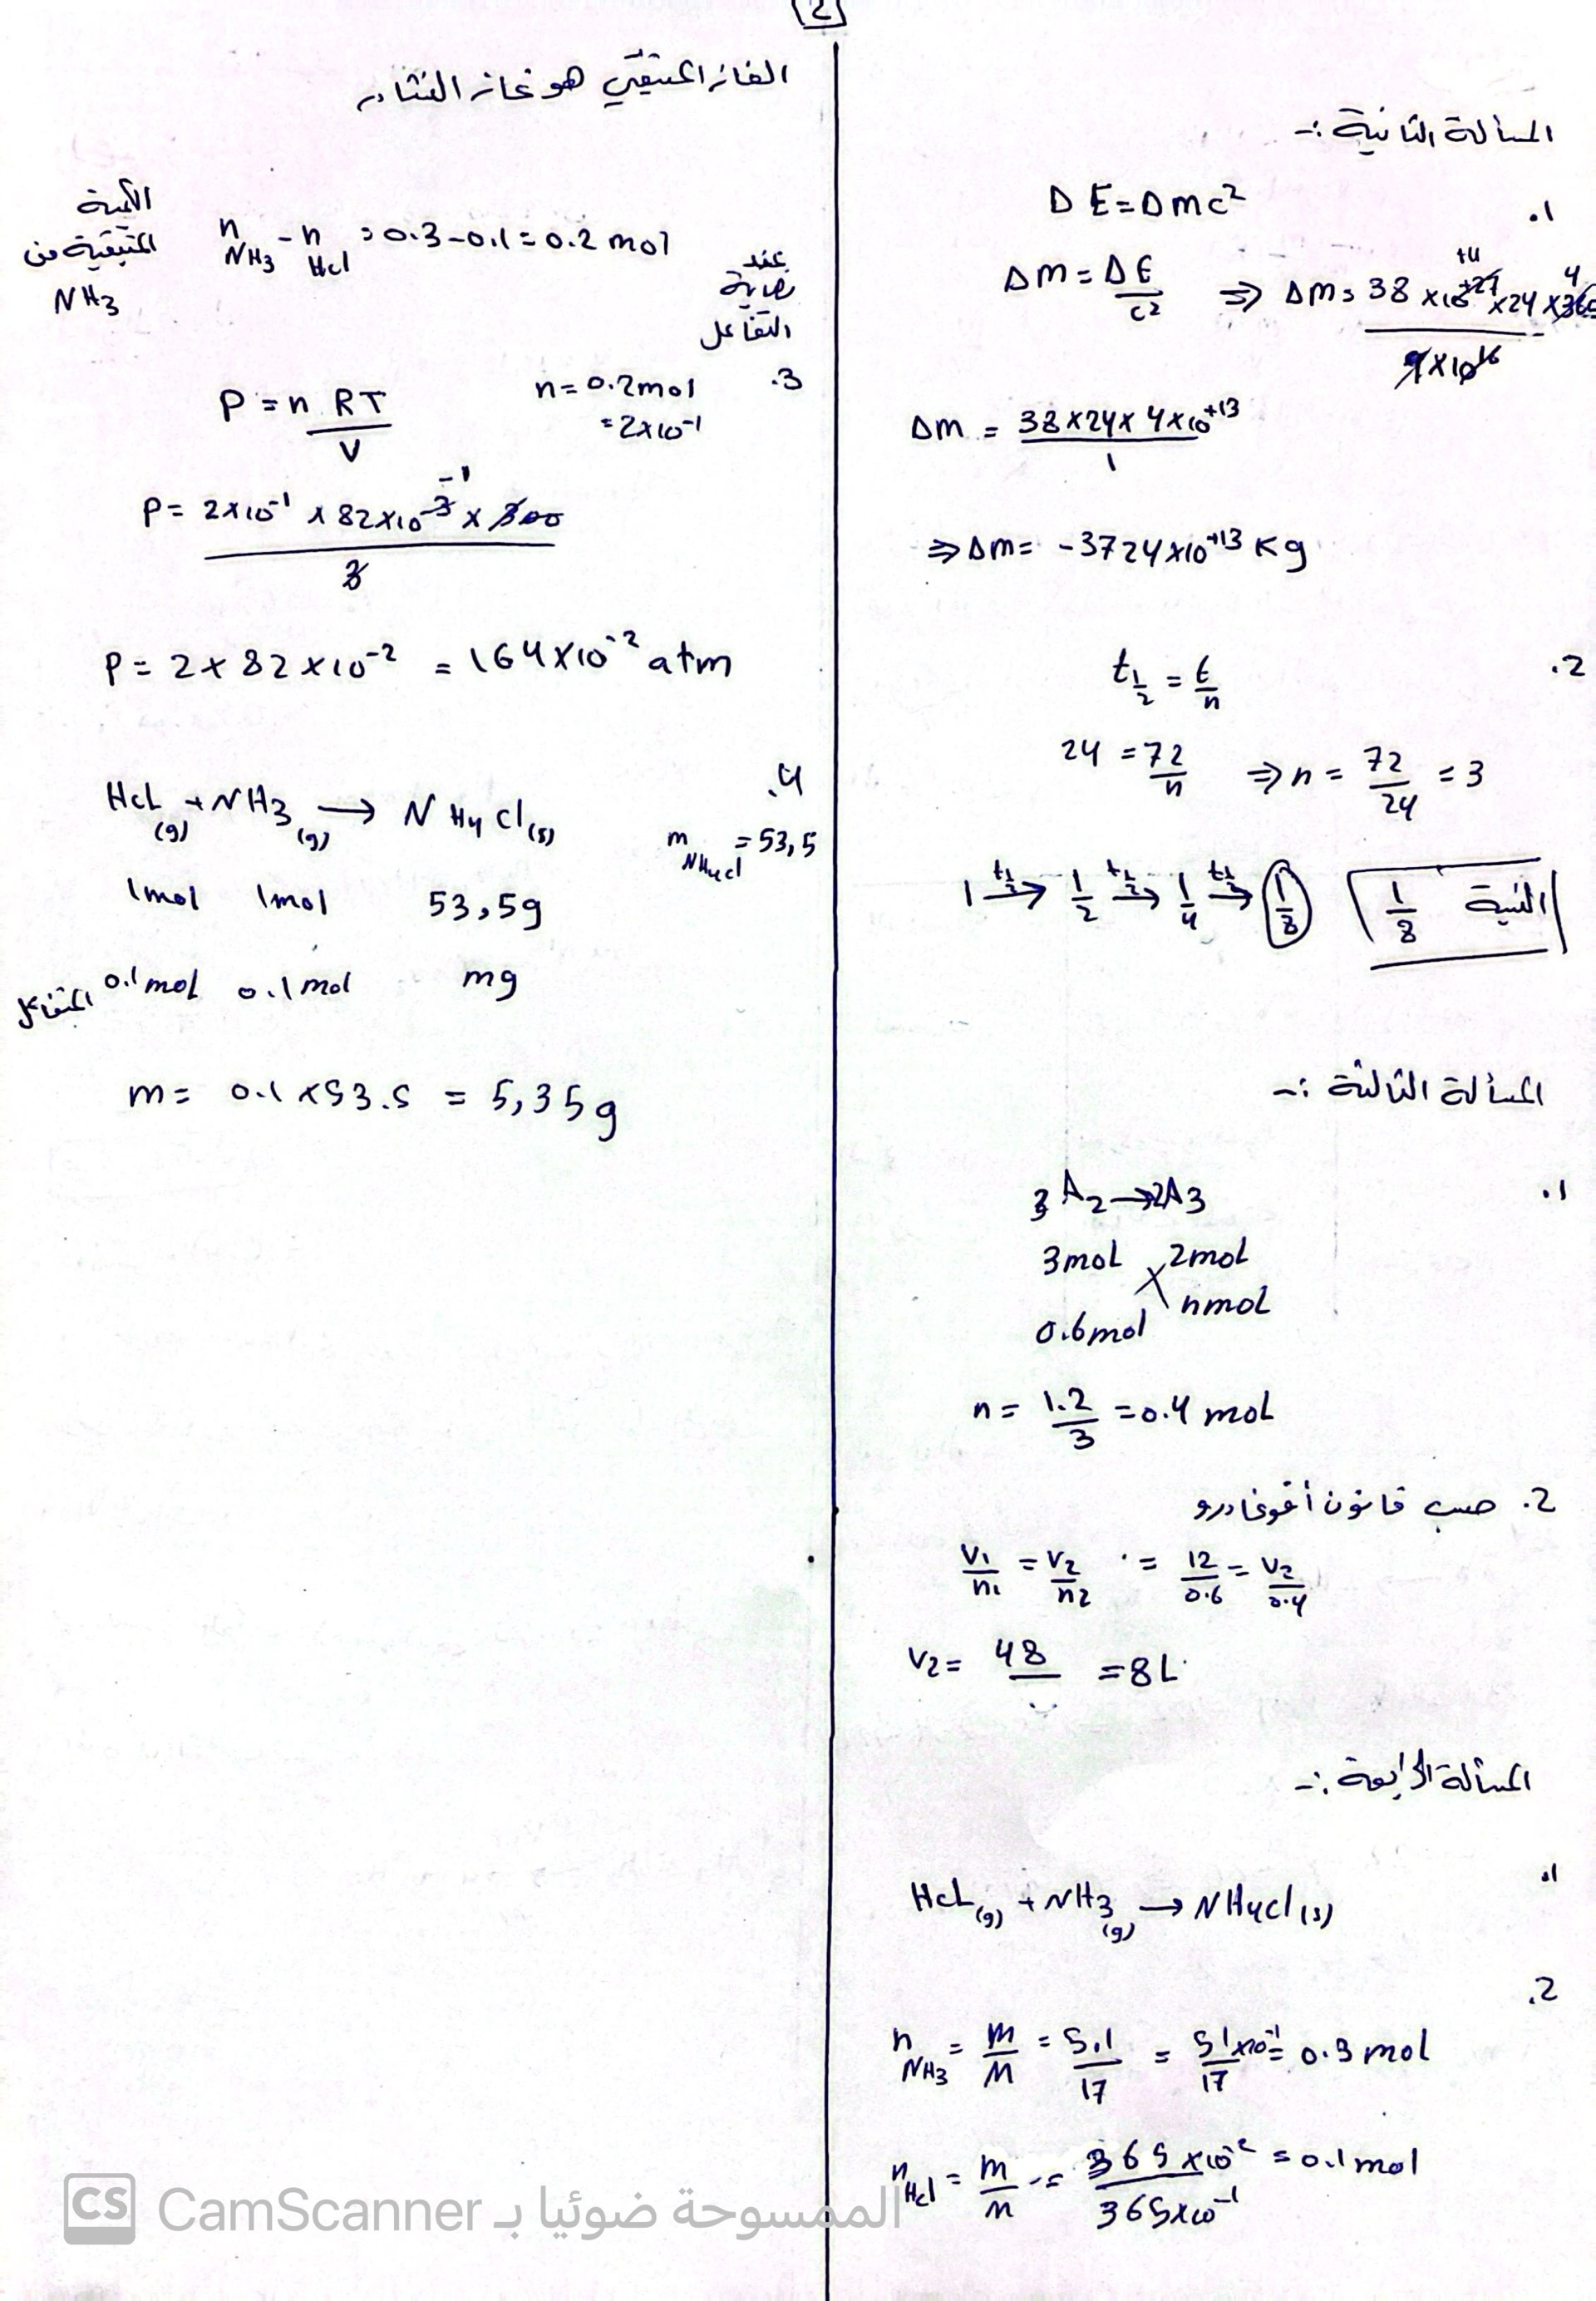 2
المسألة الثانية :-
.1
Δ E = Δ m c²
Δm = ΔE / c² ⇒ Δm = 38 × 10⁺²⁷ × 24 × 36 / 9 × 10¹⁶
+11
4
Δm = 38 × 24 × 4 × 10⁺¹³ / 1
⇒ Δm = - 3724 × 10⁺¹³ Kg
.2
t½ = t / n
24 = 72 / n ⇒ n = 72 / 24 = 3
1 →(t½) 1/2 →(t½) 1/4 →(t½) 1/8
النسبة 1/8
المسألة الثالثة :-
.1
3 A₂ → 2A₃
3mol 2mol
0.6mol nmol
n = 1.2 / 3 = 0.4 mol
2. حسب قانون أفوغادرو
V₁ / n₁ = V₂ / n₂ = 12 / 0.6 = V₂ / 0.4
V₂ = 48 / = 8 L
المسألة الرابعة :-
.1
HCl(g) + NH₃(g) → NH₄Cl(s)
.2
n NH₃ = m / M = 5.1 / 17 = 51 × 10⁻¹ / 17 = 0.3 mol
n HCl = m / M = 365 × 10⁻² / 365 × 10⁻¹ = 0.1 mol
الغاز المتبقي هو غاز النشادر
الكمية
المتبقية من
NH₃
n NH₃ - n HCl = 0.3 - 0.1 = 0.2 mol
عند
نهاية
التفاعل
.3
n = 0.2 mol
= 2×10⁻¹
P = n RT / V
P = 2×10⁻¹ × 82×10⁻³ × 300 / 3
-1
P = 2 × 82 × 10⁻² = 164 × 10⁻² atm
.4
HCl(g) + NH₃(g) → NH₄Cl(s)
m NH₄Cl = 53,5
1mol 1mol 53,5g
المتفاعل 0.1 mol 0.1 mol mg
m = 0.1 × 53.5 = 5,35 g
CS الممسوحة ضوئيا بـ CamScanner